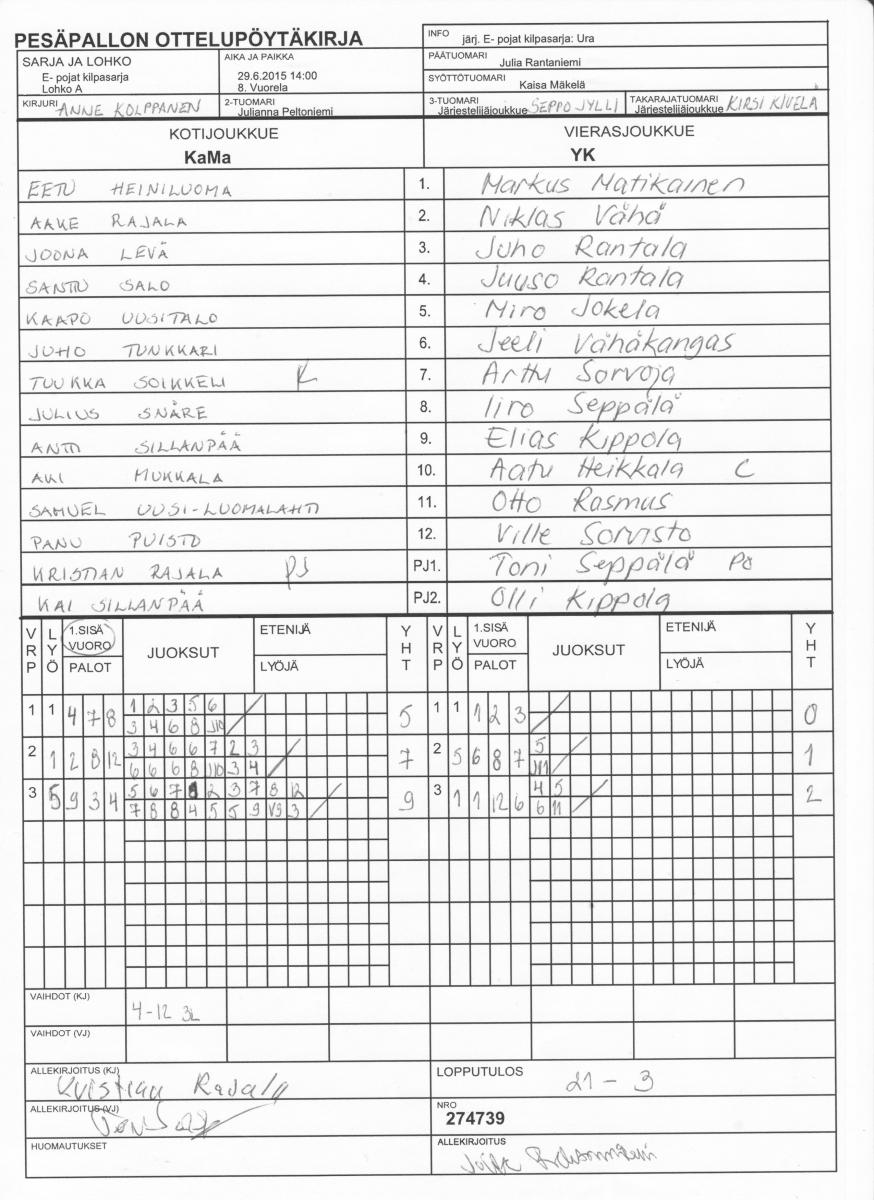 PESÄPALLON OTTELUPÖYTÄKIRJA
INFO järj. E- pojat kilpasarja: Ura
SARJA JA LOHKO
E- pojat kilpasarja
Lohko A
AIKA JA PAIKKA
29.6.2015 14:00
8. Vuorela
PÄÄTUOMARI Julia Rantaniemi
SYÖTTÖTUOMARI Kaisa Mäkelä
KIRJURI ANNE KOLPPANEN
2-TUOMARI
Julianna Peltoniemi
3-TUOMARI
Järjestelijäjoukkue SEPPO JYLLI
TAKARAJATUOMARI
Järjestelijäjoukkue KIRSI KIVELÄ
KOTIJOUKKUE
KaMa
VIERASJOUKKUE
YK
EETU HEINILUOMA 1. Markus Matikainen
AAKE RAJALA 2. Niklas Vähä
JOONA LEVÄ 3. Juho Rantala
SANTTU SALO 4. Juuso Rantala
KAAPO UUSITALO 5. Miro Jokela
JUHO TUNKKARI 6. Jeeli Vähäkangas
TUUKKA SOIKKELI K 7. Arttu Sorvoja
JULIUS SNÅRE 8. Iiro Seppälä
ANTTI SILLANPÄÄ 9. Elias Kippola
AKI MUKKALA 10. Aatu Heikkala C
SAMUEL UUSI-LUOMALAHTI 11. Otto Rasmus
PANU PUISTO 12. Ville Sorvisto
KRISTIAN RAJALA PJ PJ1. Toni Seppälä PJ
KAI SILLANPÄÄ PJ2. Olli Kippola
VRP LYÖ 1.SISÄ VUORO PALOT JUOKSUT ETENIJÄ LYÖJÄ YHT VRP LYÖ 1.SISÄ VUORO PALOT JUOKSUT ETENIJÄ LYÖJÄ YHT
1 1 4 7 8 1 2 3 5 6 5 1 1 1 2 3 0
3 4 6 8 J10
2 1 2 8 12 3 4 6 6 7 2 3 7 2 5 6 8 7 5 1
6 6 6 8 J10 3 4 J11
3 5 9 3 4 5 6 7 8 2 3 7 8 12 9 3 1 1 12 6 4 5 2
7 8 8 4 5 5 9 V9 3 6 11
VAIHDOT (KJ) 4-12 3L
VAIHDOT (VJ)
ALLEKIRJOITUS (KJ) Kristian Rajala
LOPPUTULOS 21 - 3
ALLEKIRJOITUS (VJ)
NRO
274739
HUOMAUTUKSET
ALLEKIRJOITUS